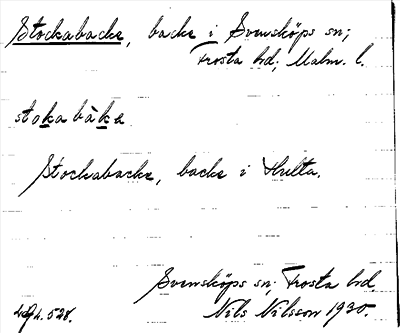 Stockabacke, backe i Svensköps sn;
Frosta hd; Malm. l.
stoka bàke
Stockabacke, backe i Hulta.
Svensköps sn; Frosta hd.
Nils Nilsson 1930.